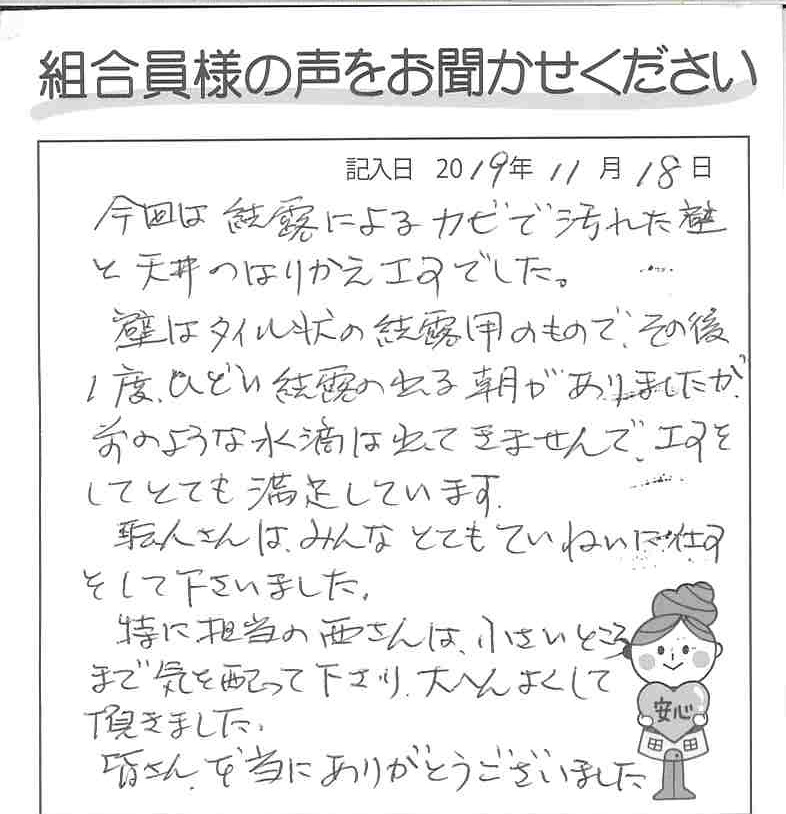 組合員様の声をお聞かせください
記入日 2019年 11月 18日
今回は 結露による カビで 汚れた 壁
と 天井のはりかえ工事でした。
壁はタイル状の結露用のもので、その後
1度、ひどい結露の出る朝がありましたが、
前のような水滴は出てきませんで、工事を
してとても満足しています。
職人さんは、みんなとてもていねいに仕事
をして下さいました。
特に担当の西さんは、小さいところ
まで気を配って下さり、大へんよくして
頂きました。
皆さん、本当にありがとうございました
安心